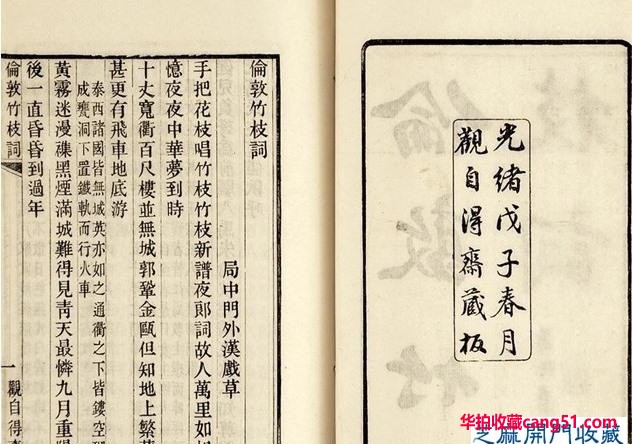 光緒戊子春月
觀自得齋藏板
倫敦竹枝詞
局中門外漢戲草
手把花枝唱竹枝竹枝新譜夜郎詞故人萬里如
憶夜夜中華夢到時
十丈寬衢百尺樓並無城郭鞏金甌但知地上繁
甚更有飛車地底游
泰西諸國皆無城英亦如之通衢之下皆鏤空
成甕洞下置鐵軌而行火車
黃霧迷漫襍黑煙滿城難得見青天最憐九月重
後一直昏昏到過年
倫敦竹枝詞
一 觀自得
华拍收藏cang51.com
芝麻開門收藏